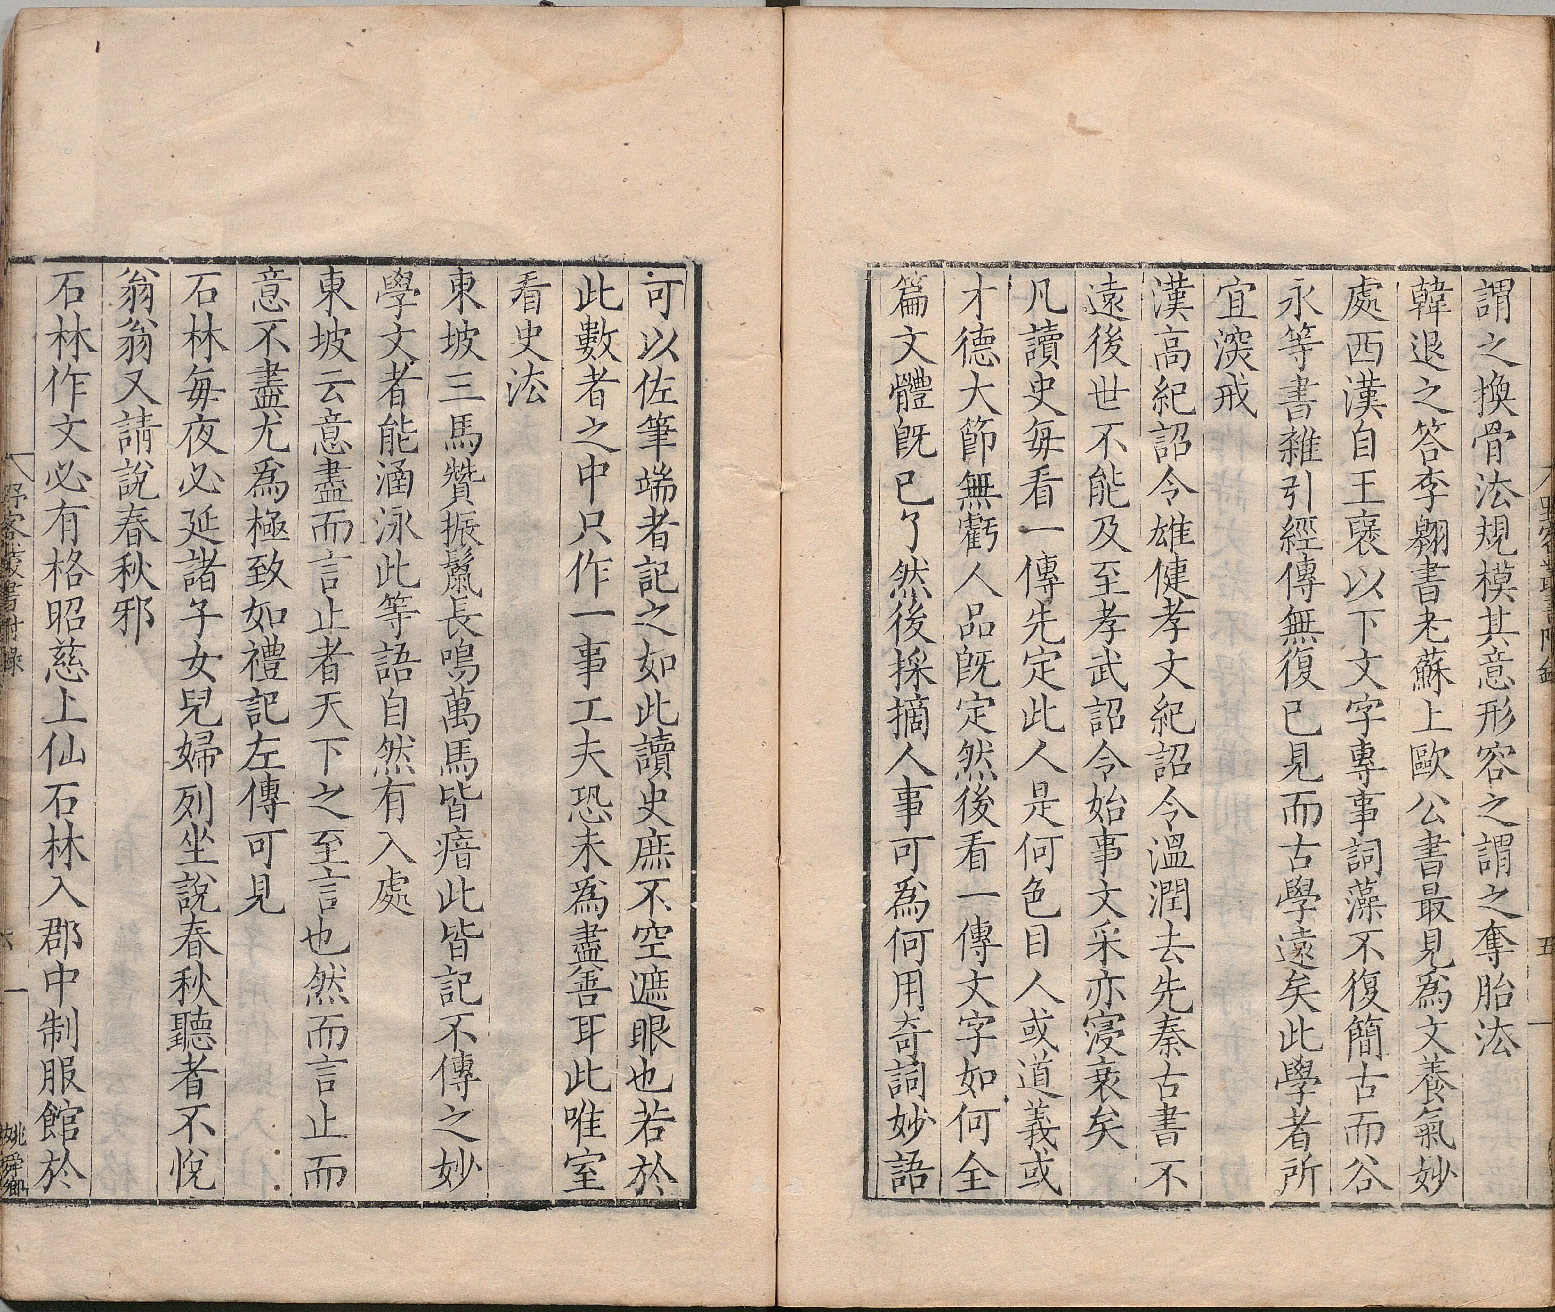 謂之換骨法規模其意形容之謂之奪胎法
韓退之答李翺書老蘇上歐公書最見爲文養氣妙
處西漢自王襃以下文字專事詞藻不復簡古而谷
永等書雜引經傳無復已見而古學遠矣此學者所
宜深戒
漢高紀詔令雄健孝文紀詔令溫潤去先秦古書不
遠後世不能及至孝武詔令始事文采亦寖衰矣
凡讀史每看一傳先定此人是何色目人或道義或
才德大節無虧人品旣定然後看一傳文字如何全
篇文體旣已了然後採摘人事可爲何用奇詞妙語
可以佐筆端者記之如此讀史庶不空遮眼也若於
此數者之中只作一事工夫恐未爲盡善耳此唯室
看史法
東坡三馬贊振鬛長鳴萬馬皆瘖此皆記不傳之妙
學文者能涵泳此等語自然有入處
東坡云意盡而言止者天下之至言也然而言止而
意不盡尤爲極致如禮記左傳可見
石林每夜必延諸子女兒婦列坐說春秋聽者不悅
翁翁又請說春秋邪
石林作文必有格昭慈上仙石林入郡中制服館於
野客叢書附錄
六
姚舜卿
五